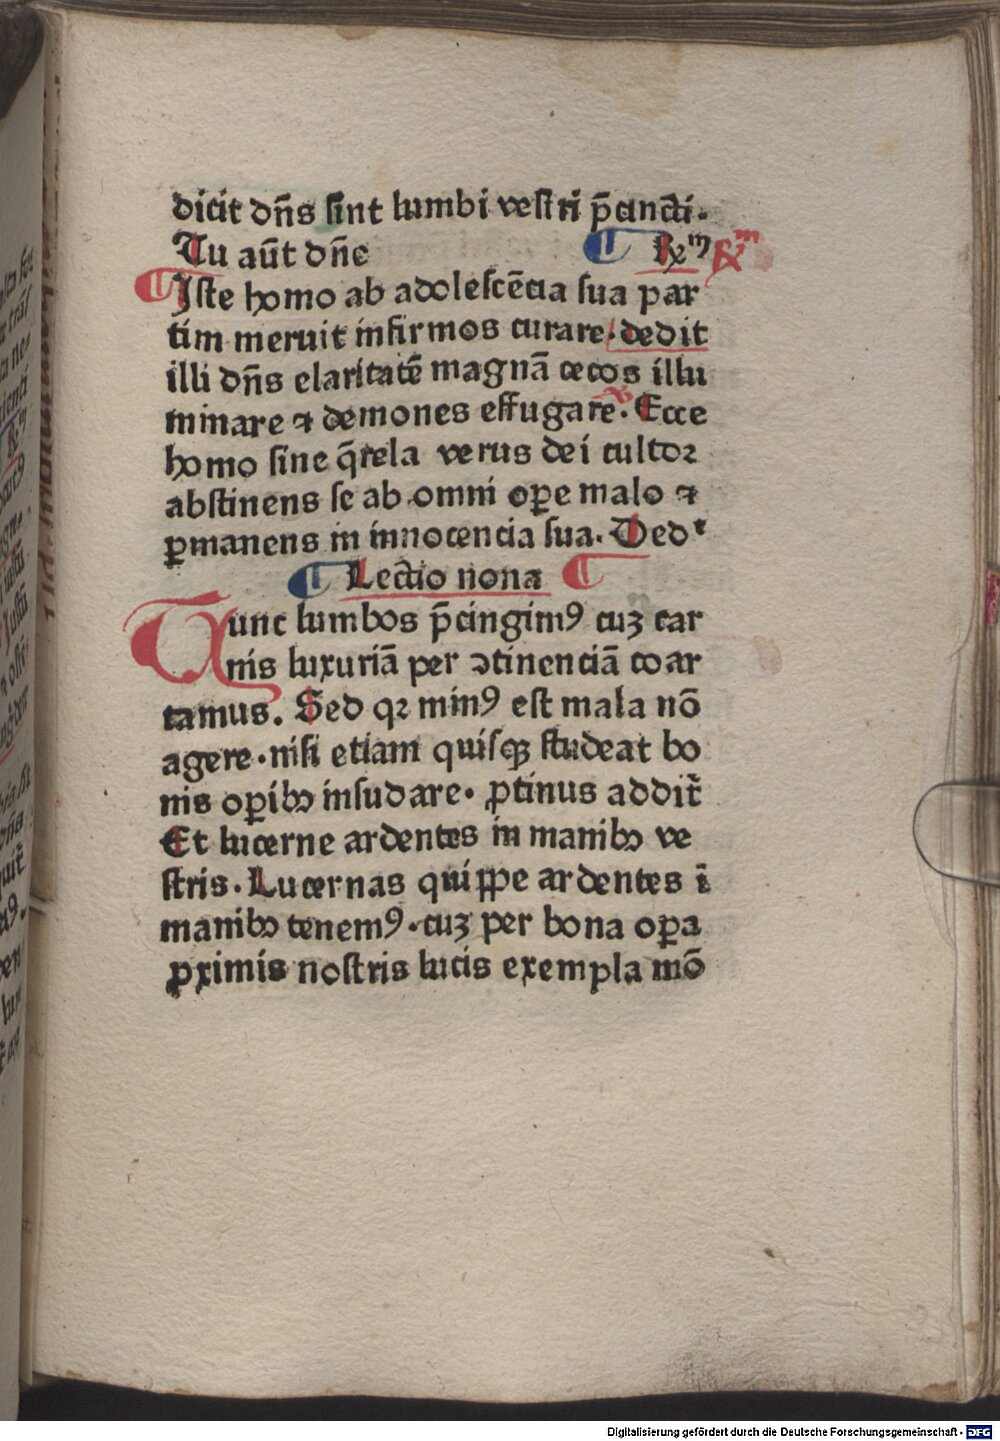 dicit dn̄s sint lumbi vestri p̄cincti.
Tu aūt dn̄e ¶ ℞ᵐ ℞ᵐ
¶ Iste homo ab adolescēcia sua par
tim meruit infirmos curare. dedit
illi dn̄s claritatē magnā cecos illu
minare ⁊ demones effugare. V Ecce
homo sine q̄rela verus dei cultoꝛ
abstinens se ab omni oꝑe malo ⁊
ꝑmanens in innocencia sua. Dedᵗ
¶ Lectio nona ¶
Tunc lumbos p̄cingimꝰ cuꝫ car
nis luxuriā per ↄtinenciā coar
tamus. Sed qꝛ minꝰ est mala nō
agere. nisi etiam quisqꝫ studeat bo
nis oꝑibꝫ insudare. ꝓtinus addit̄
Et lucerne ardentes in manibꝫ ve
stris. Lucernas quiꝑpe ardentes ī
manibꝫ tenemꝰ. cuꝫ per bona oꝑa
ꝓximis nostris lucis exempla mō
Digitalisierung gefördert durch die Deutsche Forschungsgemeinschaft - DFG